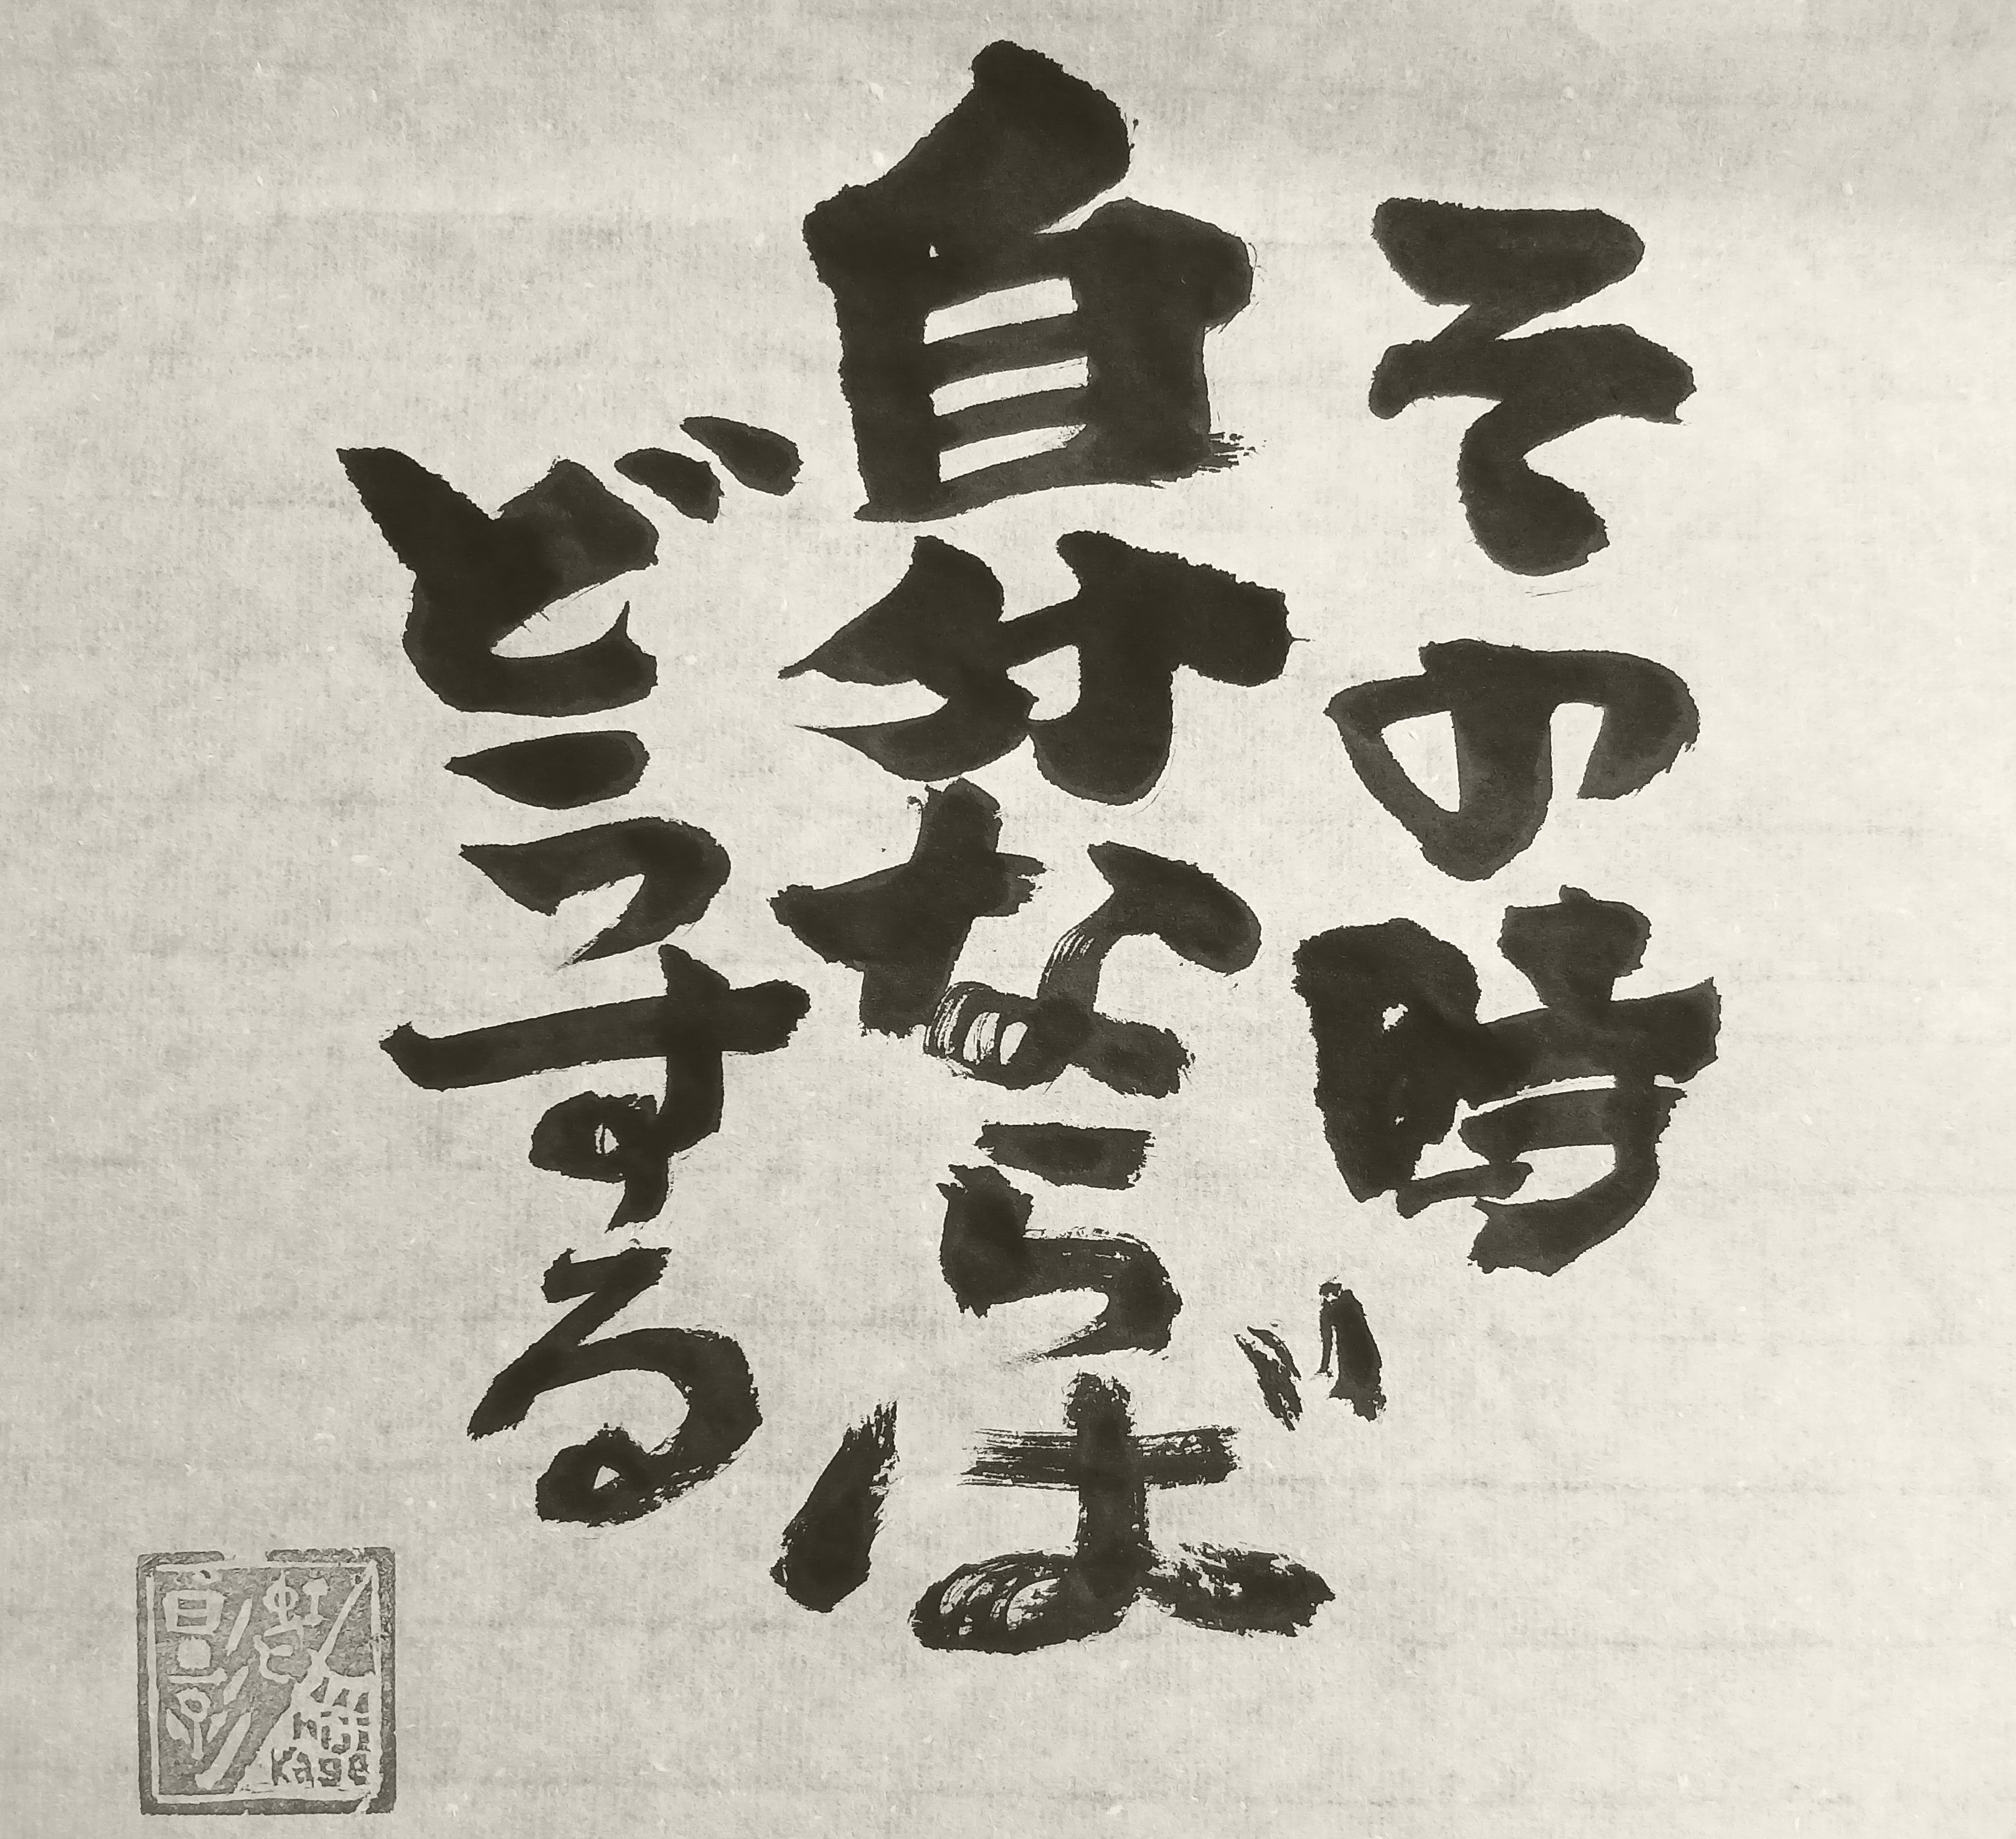 その時
自分ならば
どうする
Kage